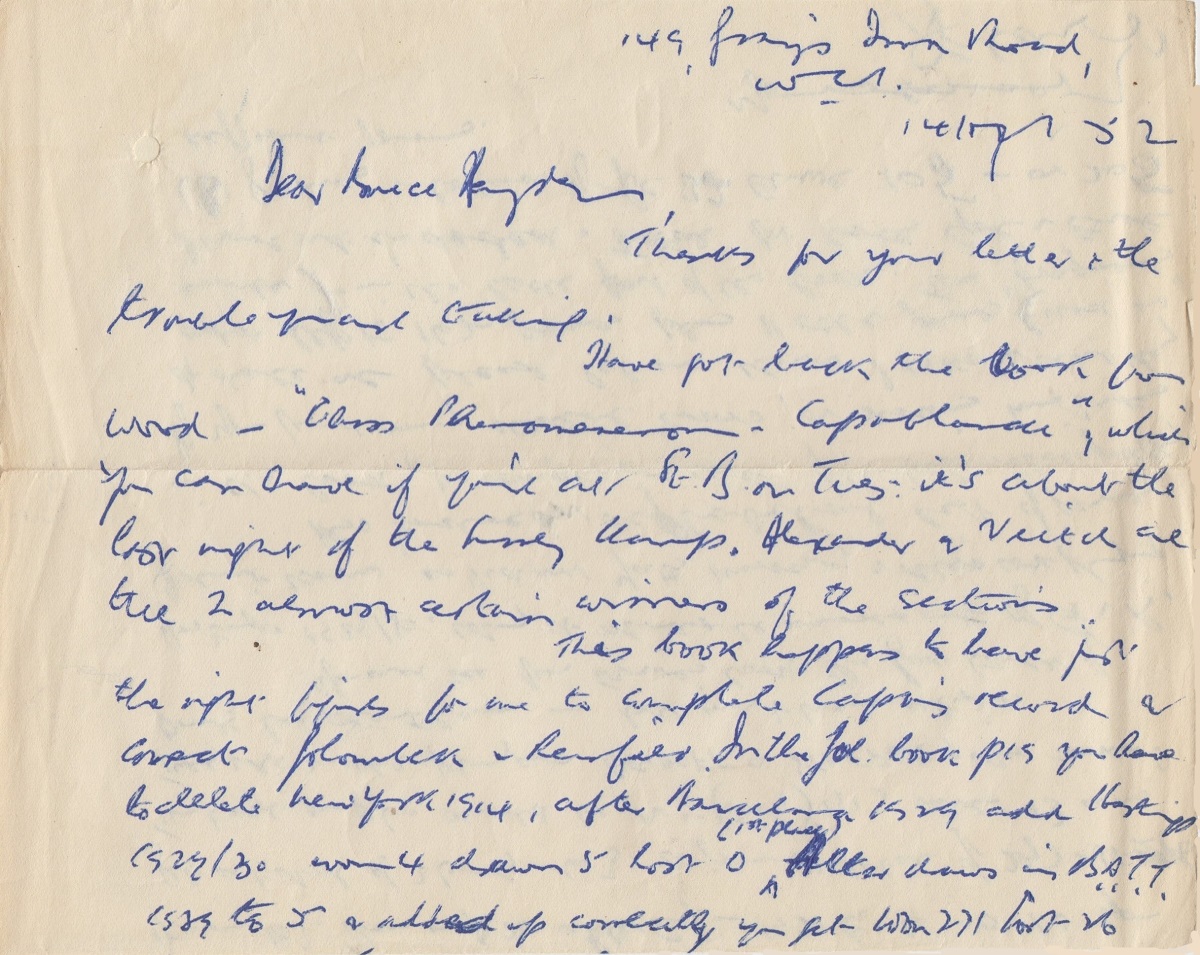 149, Gray's Inn Road,
W.C.1.
14/Sept 52
Dear Bruce Hayden,
Thanks for your letter & the
trouble you're taking.
Have got back the book from
Wood - "Chess Phenomenon - Capablanca", which
you can have if you'll call St. B. on Tues: it's about the
last night of the Champs. Alexander & Veitch are
the 2 almost certain winners of the sections.
This book happens to have just
the right figures for me to complete Capa's record &
correct Golombek & Reinfeld. In the Gol. book p19 you have
to delete New York 1914, after Barcelona 1929 add Hastings
1929/30 won 4 drawn 5 lost 0 (1st place) Alter draws in B.A.T.T.
1939 to 5 & added up correctly you get Won 271 Lost 26